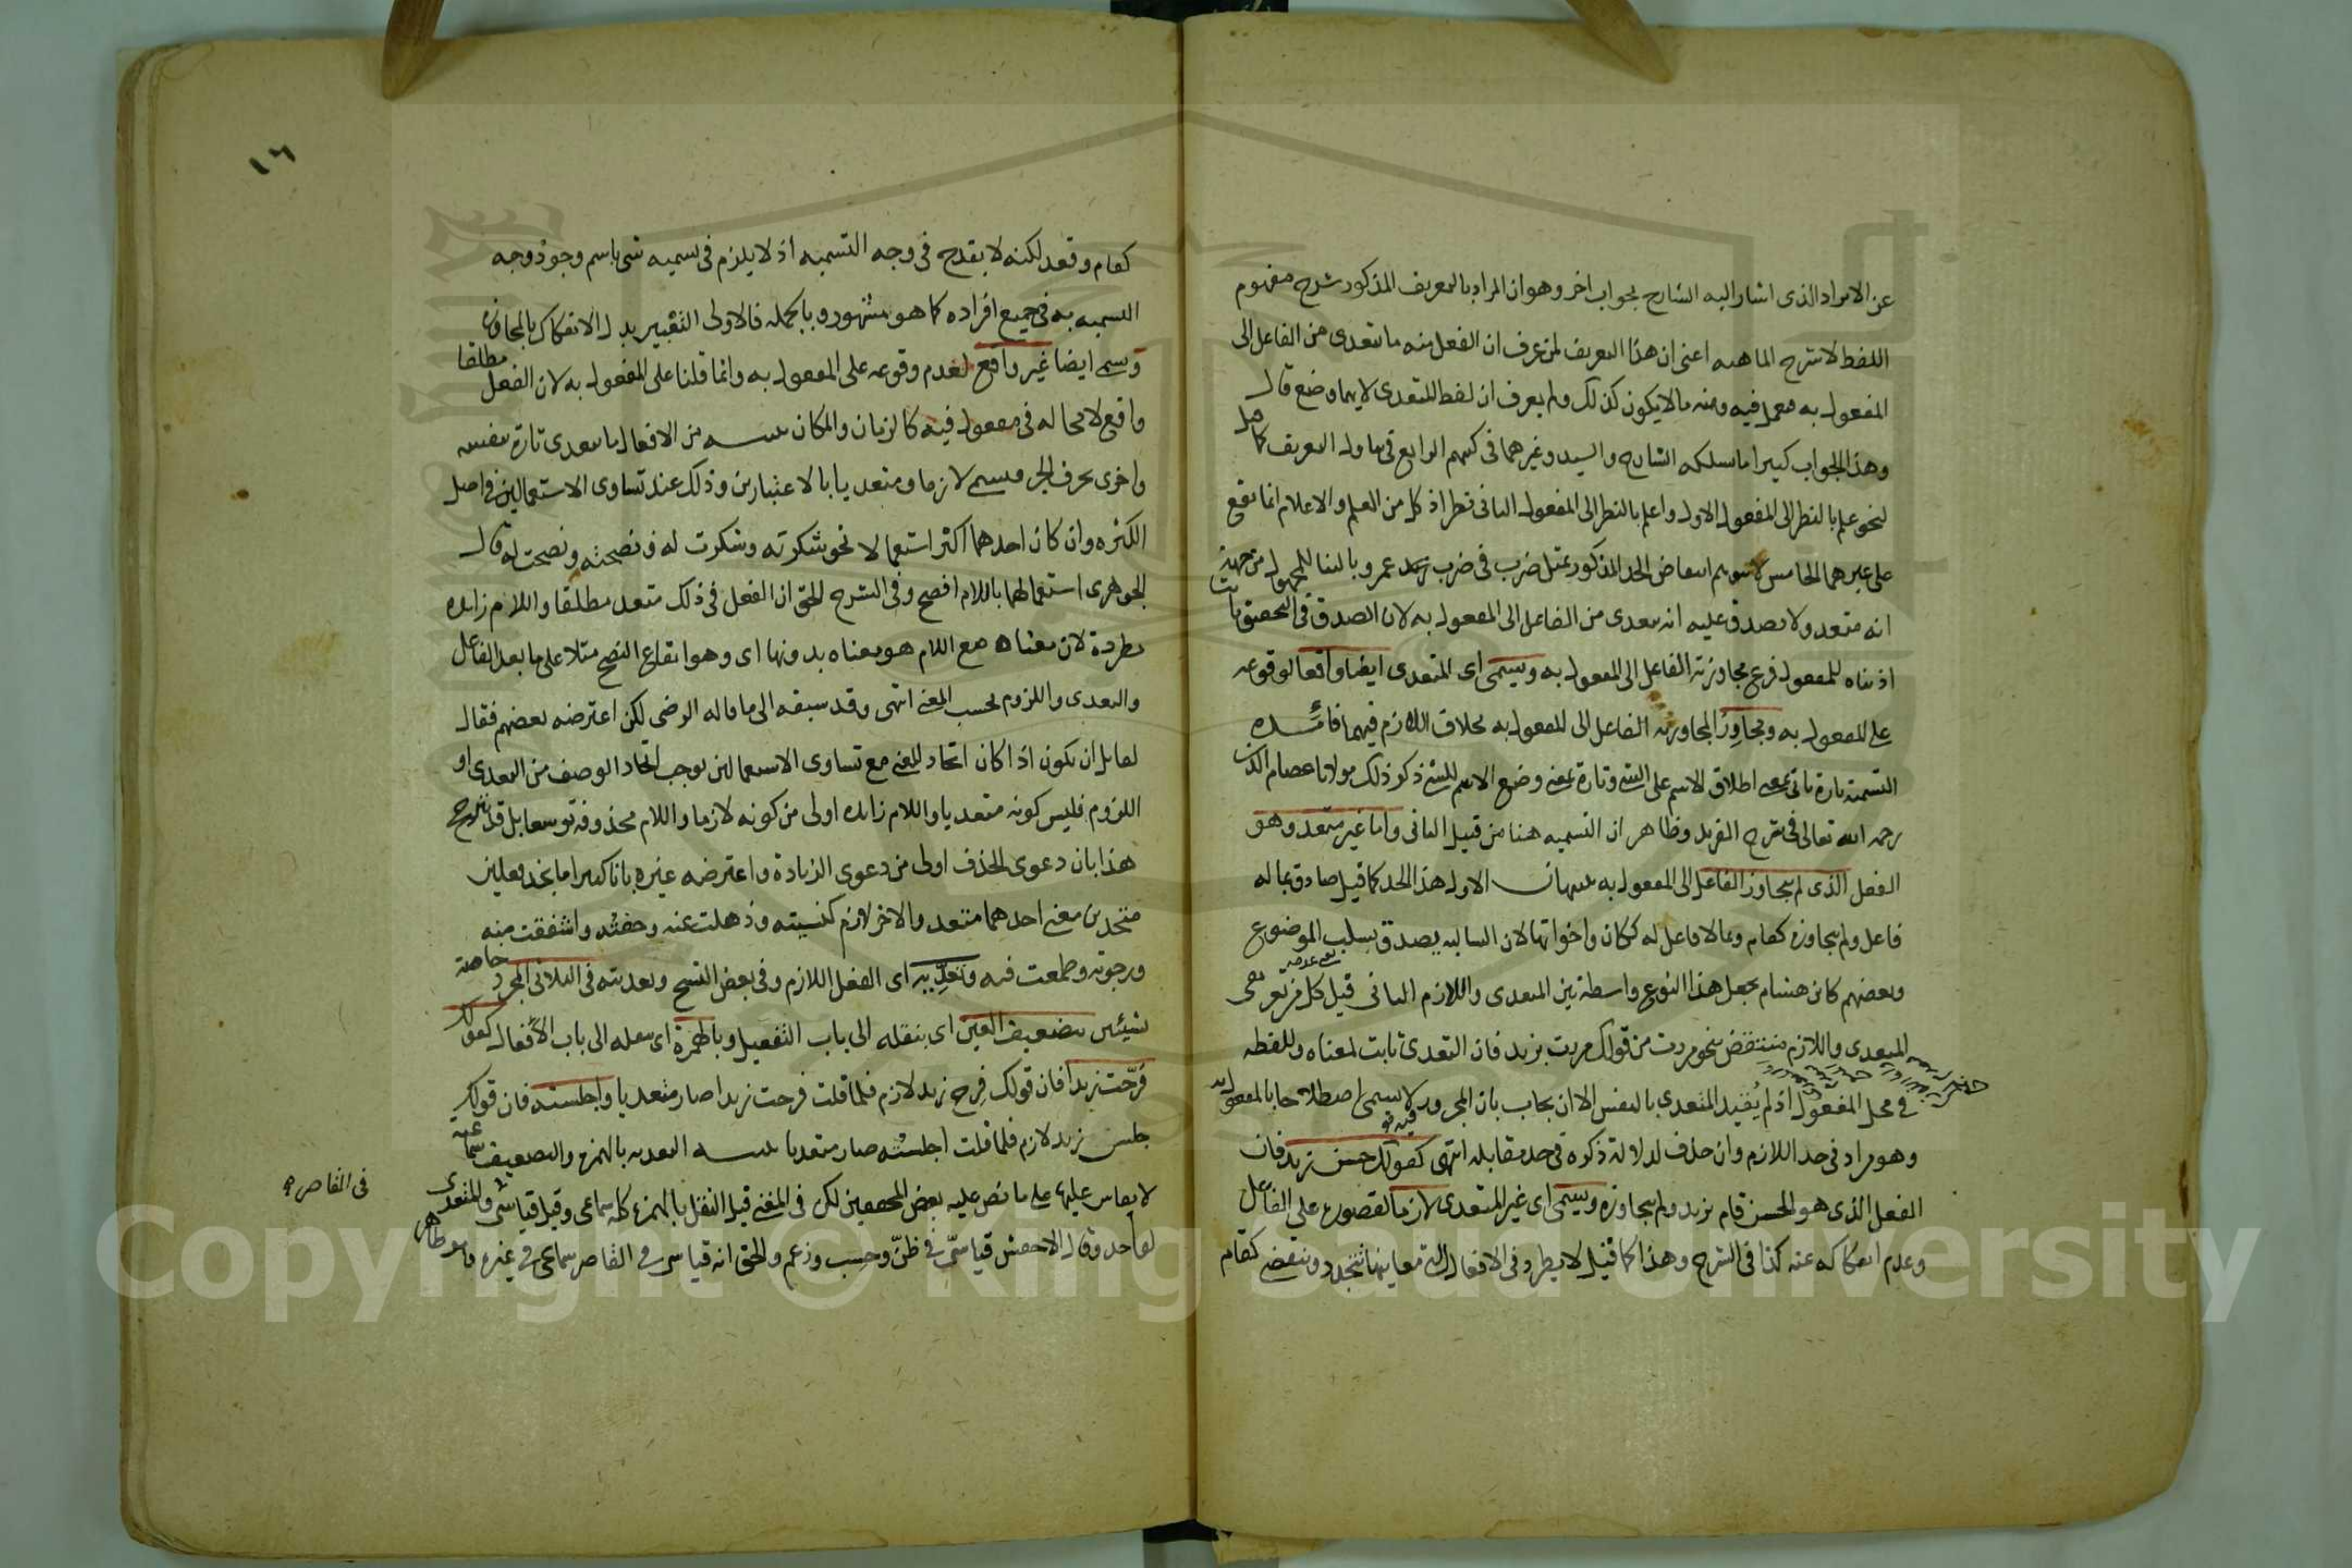 عن الايراد الذى اشار اليه الشارح بجواب اخر وهو ان المراد بالتعريف المذكور شرح مفهوم
اللفظ لا شرح الماهيه اعنى ان هذا التعريف لمن عرف ان الفعل منه ما يتعدى من الفاعل الى
المفعول به فيه ومنه ما لا يكون كذلك ولم يعرف ان لفظ المتعدى لايهما وضع قال
وهذا الجواب كثيرا ما سلكه الشارح والسيد وغيرهما فى كتبهم الرابع تناول التعريف
لنحو علم بالنظر الى المفعول الاول واعلم بالنظر الى المفعول الثانى نظر اذ كل من العلم والاعلام انما يقع
على غيرهما الخامس انتقاض الحد المذكور بمثل ضرب فى ضرب زيد عمرو بالبنا للمجهول من جهة
انه متعد ولا يصدق عليه انه يتعدى من الفاعل الى المفعول به لان الصدق فى التحقيق ثابت
اذ بناه للمفعول فرع مجاوزته الفاعل الى المفعول به ويسمى اى المتعدى ايضا واقعا لوقوعه
على المفعول به ومجاوزا لمجاوزته الفاعل الى المفعول به بخلاف اللازم فيهما فائده
التسمية تارة تاتى بمعنى اطلاق الاسم على الشى وتارة بمعنى وضع الاسم للشى ذكر ذلك مولانا عصام الدين
رحمه الله تعالى فى شرح الفريد وظاهر ان التسميه هنا من قبيل الثانى واما غير متعد وهو
الفعل الذى لم يتجاوز الفاعل الى المفعول به تنبيهان الاول هذا الحد كما قيل صادق بما له
فاعل ولم يجاوزه كقام وبما لا فاعل له ككان واخواتها لان السالبه يصدق بسلب الموضوع
وبعضهم كابن هشام يجعل هذا النوع واسطة بين المتعدى واللازم الثانى قيل كل من تعريفى
المتعدى واللازم منتقض بنحو مررت من قولك مررت بزيد فان التعدى ثابت لمعناه وللفظه
فى محل المفعول اذ لم يقيد المتعدى بالنفس الا ان يجاب بان المجرور لا يسمى اصطلاحا بالمفعول به
وهو مراد فى حد اللازم وان حذف لدلالة ذكره فى حد مقابله انتهى كقولك حسن زيد فان
الفعل الذى هو الحسن قام بزيد ولم يتجاوزه ويسمى اى غير المتعدى لازما لقصوره على الفاعل
وعدم انفكاكه عنه كذا فى الشرح وهذا كما قيل لا يطرد فى الافعال التى معانيها تتجدد وتنقضى كقام
١٦
كقام وقعد لكنه لا يقدح فى وجه التسميه اذ لا يلزم فى تسميه شى باسم وجود وجه
التسميه به فى جميع افراده كما هو مشهور وبالجمله فالاولى التعبير بدل الانفكاك بالمجاوزة
وسمى ايضا غير واقع لعدم وقوعه على المفعول به وانما قلنا على المفعول به لان الفعل مطلقا
واقع لا محاله فى مفعول فيه كالزمان والمكان تنبيه من الافعال ما يتعدى تارة بنفسه
واخرى بحرف الجر فيسمى لازما ومتعديا بالاعتبارين وذلك عند تساوى الاستعمالين فى اصل
الكثره وان كان احدهما اكثر استعمالا نحو شكرته وشكرت له ونصحته ونصحت له قال
الجوهرى استعمالهما باللام افصح وفى الشرح الحق ان الفعل فى ذلك متعد مطلقا واللام زايده
مطردة لان معناه مع اللام هو معناه بدونها اى وهو ايقاع النصح مثلا على ما بعد الفاعل
والتعدى واللزوم بحسب المعنى انتهى وقد سبقه الى ما قاله الرضى لكن اعترضه بعضهم فقال
لقايل ان يكون اذا كان اتحاد المعنى مع تساوى الاستعمالين يوجب اتحاد الوصف من التعدى او
اللزوم فليس كونه متعديا واللام زايده اولى من كونه لازما واللام محذوفة توسعا بل قد يترجح
هذا بان دعوى الحذف اولى من دعوى الزيادة واعترضه غيره بانا كثيرا ما نجد فعلين
متحدين معنى احدهما متعد والاخر لازم كنسيته وذهلت عنه وخفته واشفقت منه
ورجوته وطمعت فيه وتعديه اى الفعل اللازم وفى بعض النسخ وتعديته فى الثلاثى المجرد خاصة
بشيئين بتضعيف العين اى بنقله الى باب التفعيل وبالهمزة اى بنقله الى باب الافعال كقولك
فرحت زيدا فان قولك فرح زيد لازم فلما قلت فرحت زيدا صار متعديا واجلسته فان قولك
جلس زيد لازم فلما قلت اجلسته صار متعديا تنبيه التعديه بالهمزه والتضعيف سماعيه
لا يقاس عليها على ما نص عليه بعض المحققين لكن فى المغنى قيل النقل بالهمزه كله سماعى وقيل قياسى والمتعدى
لواحد وقال الاخفش قياسى فى ظن وحسب وزعم والحق انه قياسى فى القاصر سماعى فى غيره وهو ظاهر
فى القاصر
Copyright © King Saud University